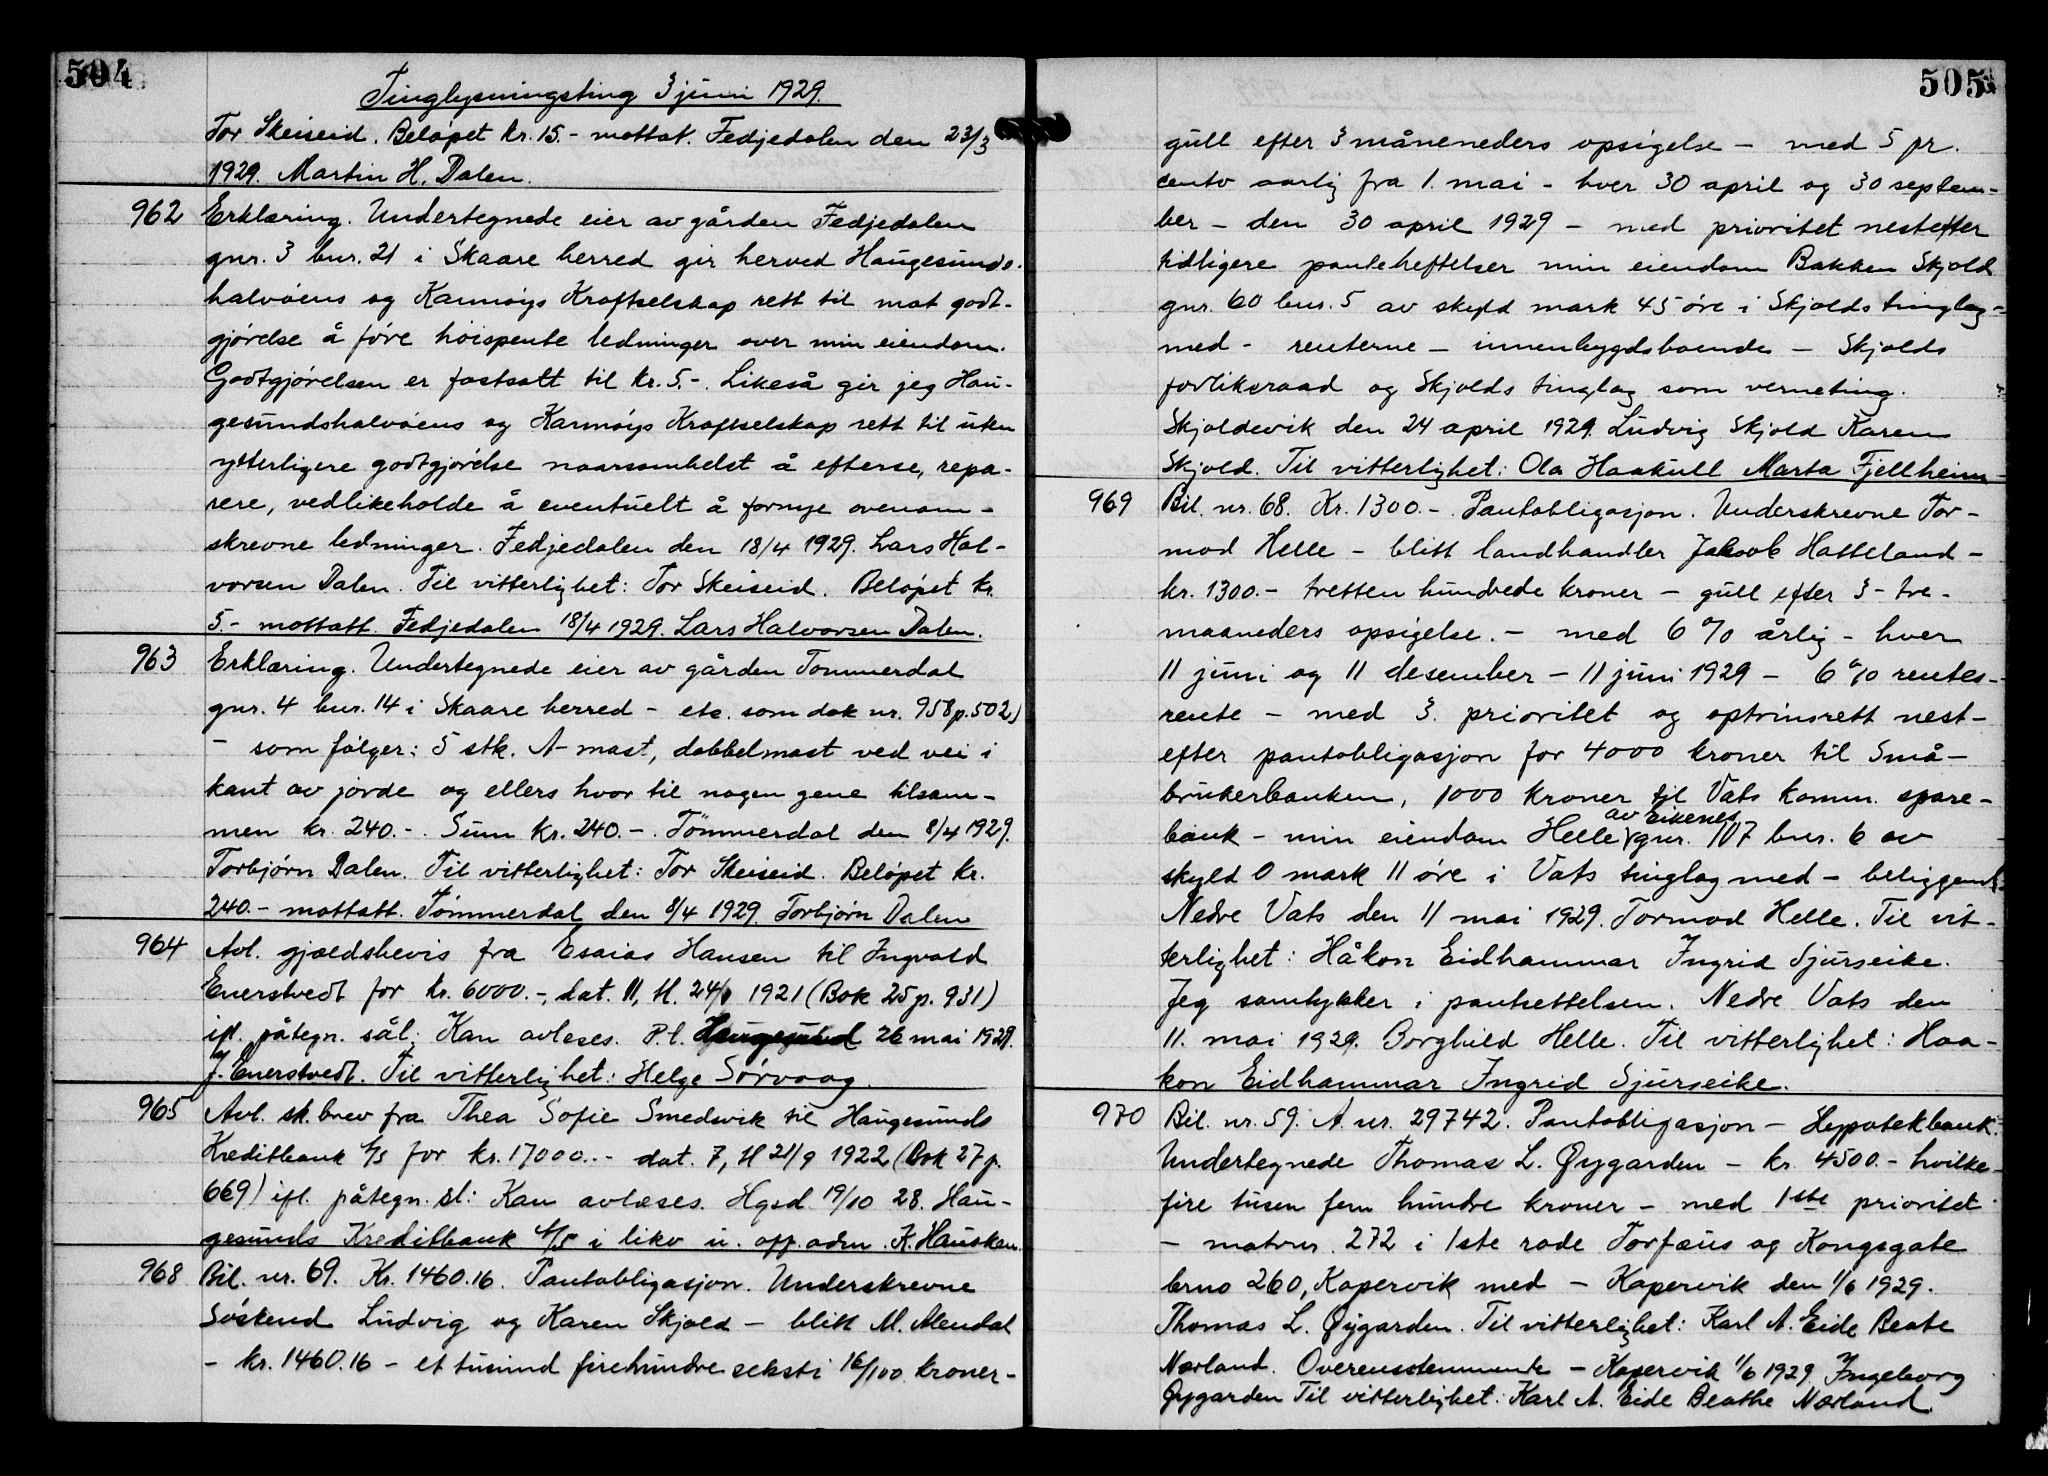 504
Tinglysningsting 3 juni 1929.
Tor Skeiseid. Beløpet kr. 15.- mottat. Fedjedalen den 23/3
1929. Martin H. Dalen.
962 Erklæring. Undertegnede eier av gården Fedjedalen
gnr. 3 bnr. 21 i Skaare herred gir herved Haugesunds-
halvøens og Karmøys Kraftselskap rett til mot godt-
gjørelse å føre høispente ledninger over min eiendom.
Godtgjørelsen er fastsatt til kr. 5.-. Likeså gir jeg Hau-
gesundshalvøens og Karmøys Kraftselskap rett til uten
ytterligere godtgjørelse naarsomhelst å efterse, repa-
rere, vedlikeholde å eventuelt å fornye ovenom-
skrevne ledninger. Fedjedalen den 18/4 1929. Lars Hal-
vorsen Dalen. Til vitterlighet: Tor Skeiseid. Beløpet kr.
5.- mottatt. Fedjedalen 18/4 1929. Lars Halvorsen Dalen.
963 Erklæring. Undertegnede eier av gården Tømmerdal
gnr. 4 bnr. 14 i Skaare herred - etc. som dok nr. 958 p. 502)
- som følger: 5 stk. A-mast, dobbelmast ved vei i
kant av jorde og ellers hvor til nogen gene tilsam-
men kr. 240.-. Sum kr. 240.-. Tømmerdal den 8/4 1929.
Torbjørn Dalen. Til vitterlighet: Tor Skeiseid. Beløpet kr.
240.- mottatt. Tømmerdal den 8/4 1929. Torbjørn Dalen
964 Avl. gjældsbevis fra Esaias Hansen til Ingvald
Enerstvedt for kr. 6000.-, dat. 11, tl. 1921 (Bok 25 p. 931)
ifl. påtegn. sål: Kan avleses. P.t. Haugesund 26 mai 1929.
J. Enerstvedt. Til vitterlighet: Helge Sørvaag.
965 Avl. sk.brev fra Thea Sofie Smedsvik til Haugesunds
Kreditbank A/S for kr. 17000.- dat. 7, tl 21/9 1922 (Bok 27 p.
669) ifl. påtegn. sl: Kan avlæses. Hgsd. 19/10 28. Hau-
gesunds Kreditbank A/S i likv u. off. adm. K. Hausken.
968 Bil. nr. 69. Kr. 1460.16. Pantobligasjon. Underskrevne
Søskend Ludvig og Karen Skjold - blitt M. Alendal
- kr. 1460.16 - et tusind firehundre seksti 16/100 kroner -
505
gull efter 3 måneneders opsigelse - med 5 pr.
cento aarlig fra 1. mai - hver 30 april og 30 septem-
ber - den 30 april 1929 - med prioritet nestefter
tidligere panteheftelser min eiendom Bakken Skjold
gnr. 60 bnr. 5 av skyld mark 45 øre i Skjolds tinglag -
med - renterne - innenbygdsboende - Skjolds
forliksraad og Skjolds tinglag som verneting.
Skjoldevik den 24 april 1929. Ludvig Skjold Karen
Skjold. Til vitterlighet: Ola Haakull Marta Fjellheim
969 Bil. nr. 68. Kr. 1300.-. Pantobligasjon. Underskrevne Tor-
mod Helle - blitt landhandler Jakob Hatteland -
kr. 1300.- tretten hundrede kroner - gull efter 3 - tre -
maaneders opsigelse. - med 6 % årlig - hver
11 juni og 11 desember - 11 juni 1929 - 6 % rentes-
rente - med 3. prioritet og optrinsrett nest-
efter pantobligasjon for 4000 kroner til Små-
brukerbanken, 1000 kroner til Vats komm. spare-
av Eikenes
bank - min eiendom Helle gnr. 107 bnr. 6 av
skyld 0 mark 11 øre i Vats tinglag med - beliggende
Nedre Vats den 11 mai 1929. Tormod Helle. Til vit-
terlighet: Håkon Eidhammar Ingrid Sjurseike.
Jeg samtykker i pantsettelsen. Nedre Vats den
11. mai 1929. Borghild Helle. Til vitterlighet: Haa-
kon Eidhammar Ingrid Sjurseike.
970 Bil. nr. 59. A. nr. 29742. Pantobligasjon - Hypotekbank.
Undertegnede Thomas L. Øygarden - kr. 4500.- hvilke-
fire tusen fem hundre kroner - med 1ste prioritet
- matrnr. 272 i 1ste rode Torfæus og Kongsgate
brno 260, Kopervik med - Kopervik den 1/6 1929.
Thomas L. Øygarden. Til vitterlighet: Karl A. Eide Beate
Nærland. Overensstemmende - Kopervik 1/6 1929. Ingeborg
Øygarden Til vitterlighet: Karl A. Eide Beathe Nærland.